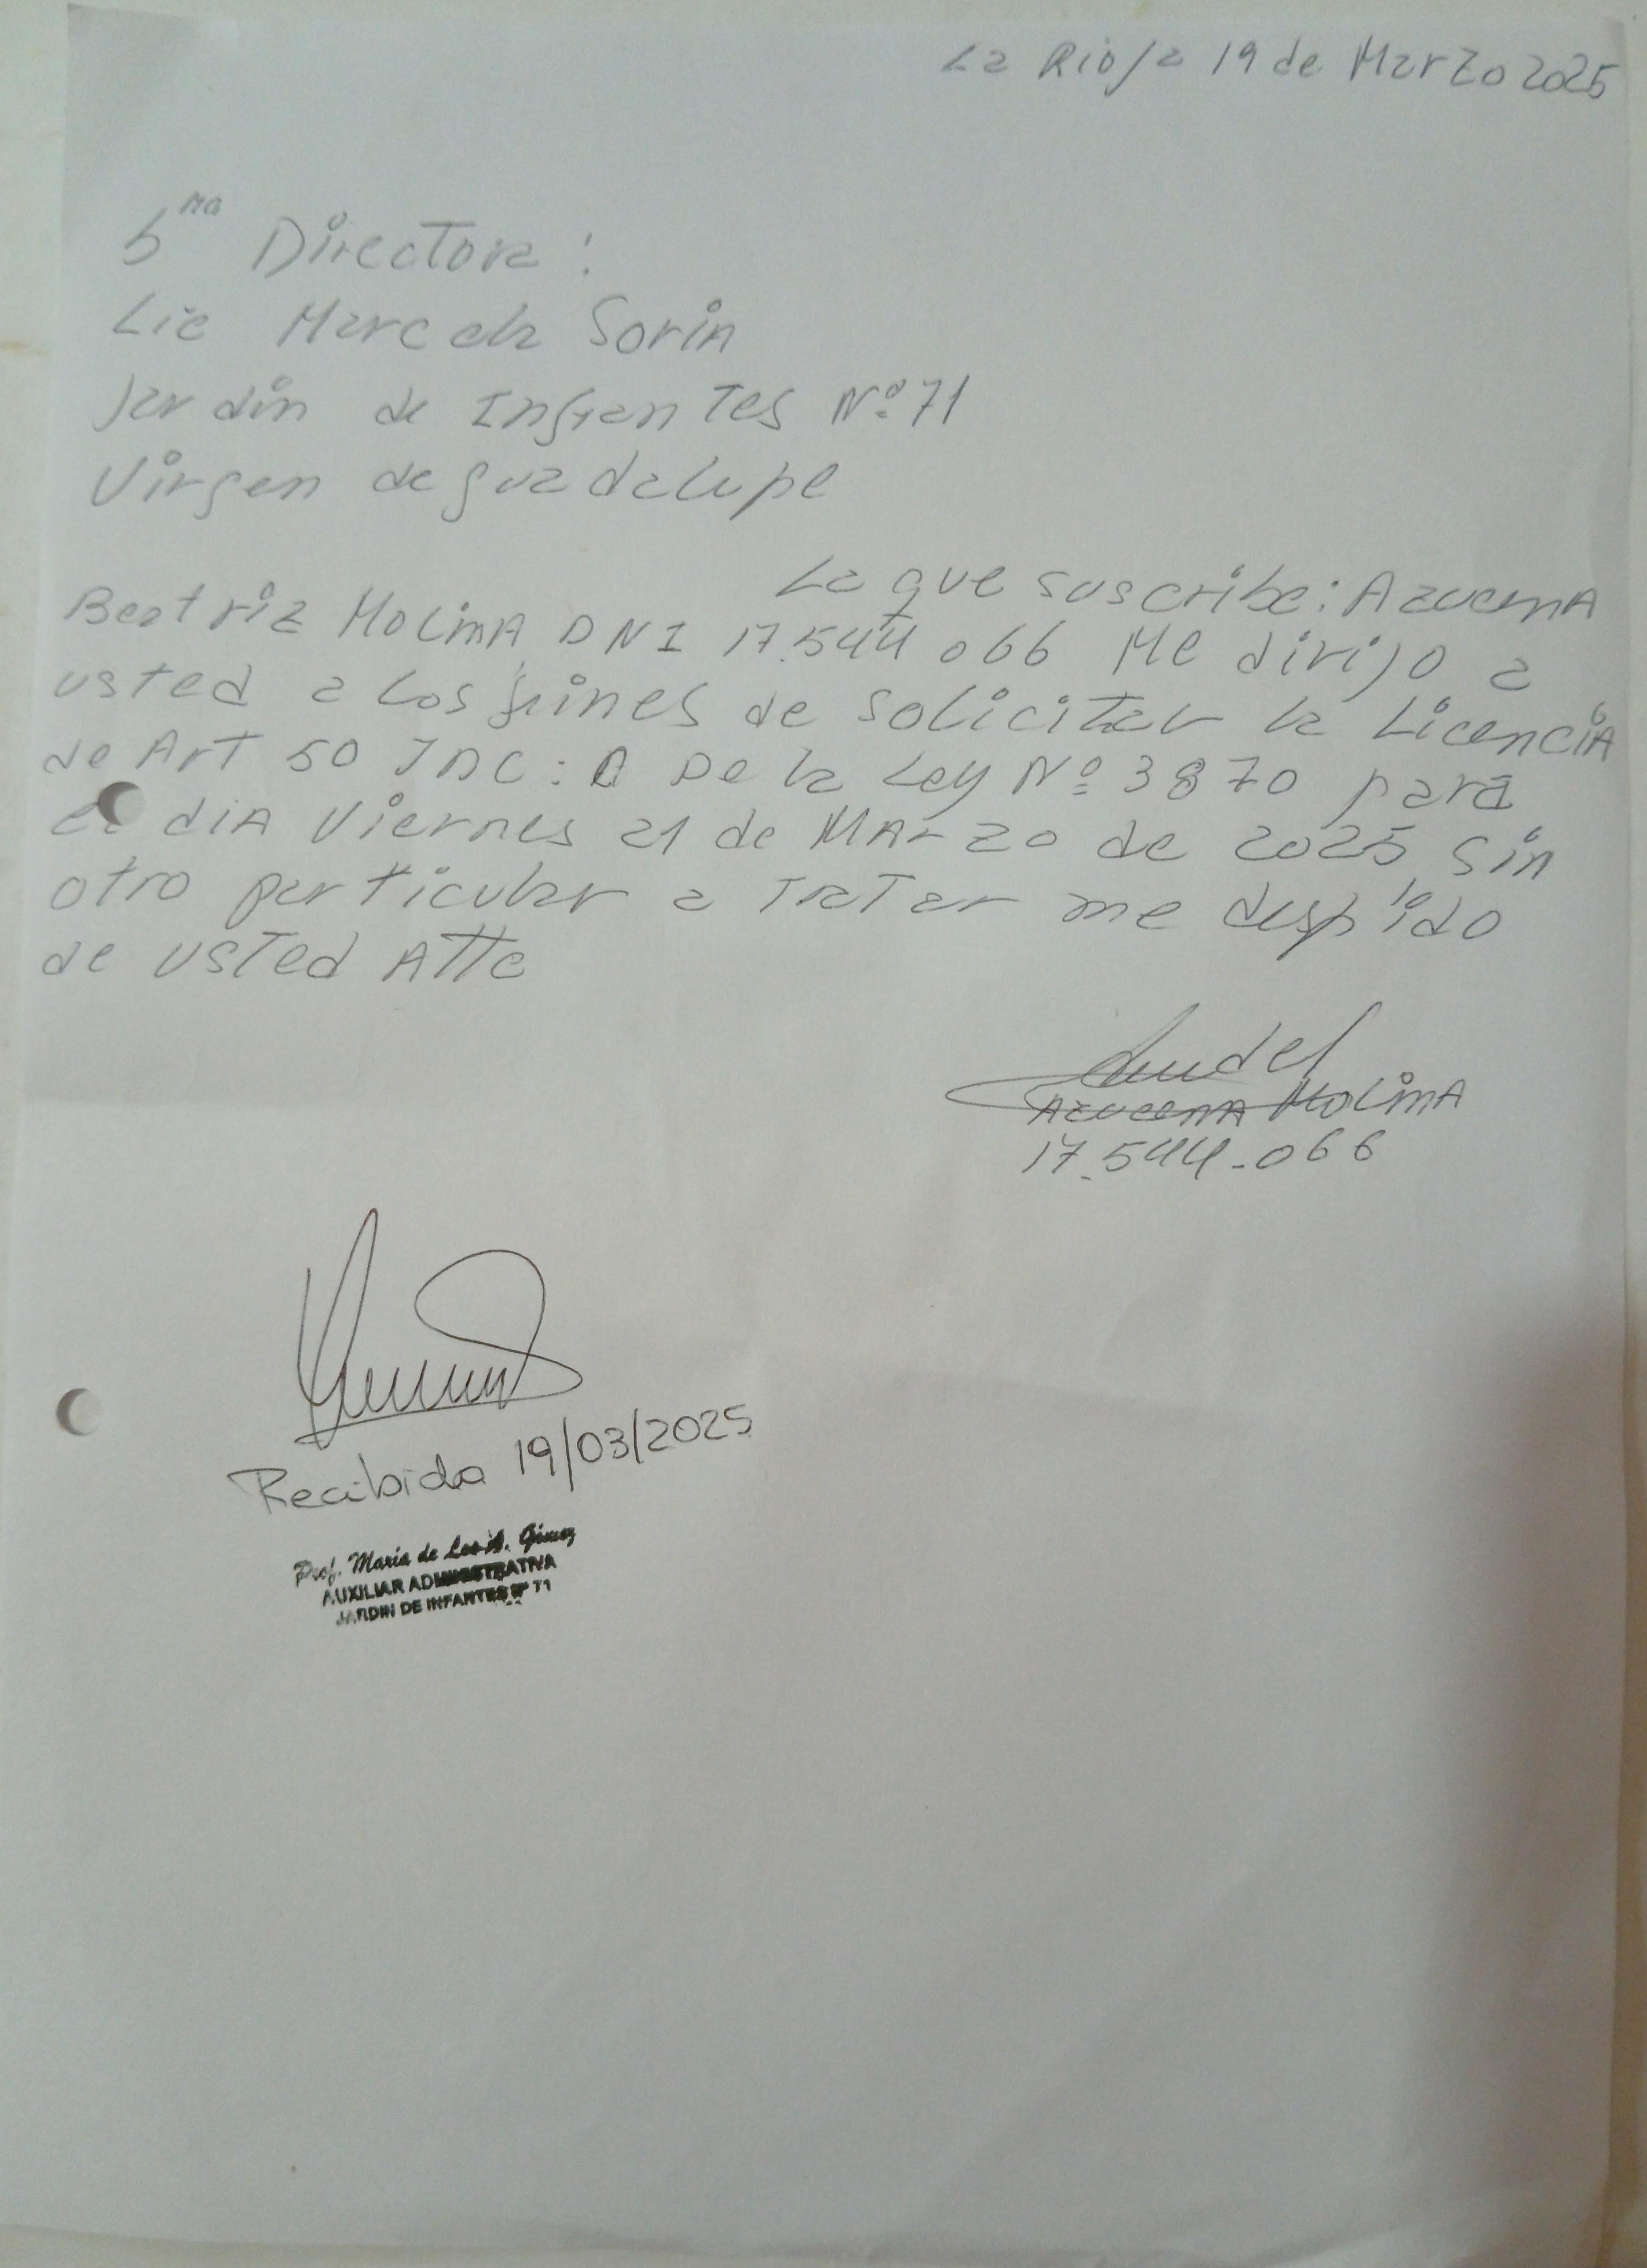 La Rioja 19 de Marzo 2025
Sra Directora:
Lic Marcela Sorin
Jardin de Infantes Nº 71
Virgen de guadalupe
La que suscribe: Azucena
Beatriz Molina DNI 17.544.066 Me dirijo a
usted a los fines de solicitar la Licencia
de Art 50 INC: De la Ley Nº 3870 para
el dia Viernes 21 de Marzo de 2025, sin
otro particular a tratar me despido
de usted Atte
Azucena Molina
17.544.066
Recibido 19/03/2025
Prof. María de Los A. Gimez
AUXILIAR ADMINISTRATIVA
JARDIN DE INFANTES Nº 71